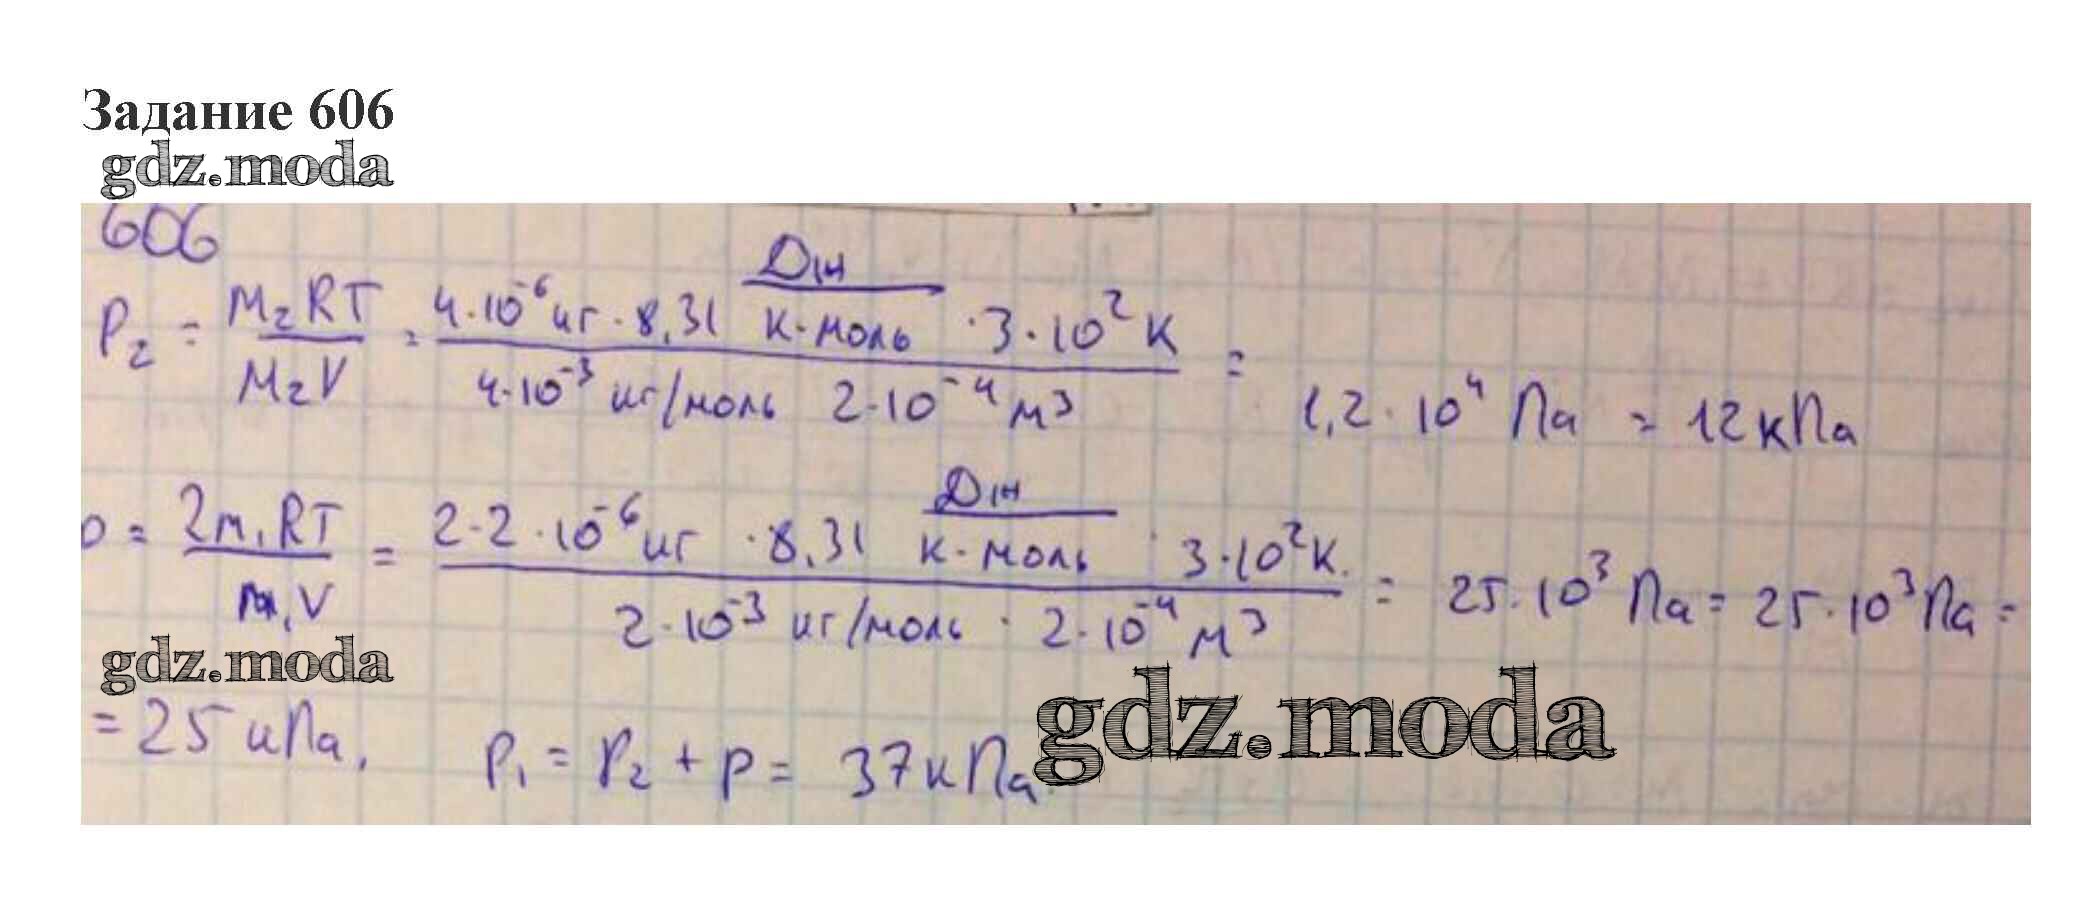 Задание 606
gdz.moda
606
P₂ = M₂RT / M₂V = 4·10⁻⁶ кг · 8,31 Дж / К·моль · 3·10² К / 4·10⁻³ кг/моль 2·10⁻⁴ м³ = 1,2·10⁴ Па = 12 кПа
p = 2m₁RT / m₁V = 2·2·10⁻⁶ кг · 8,31 Дж / К·моль · 3·10² К. / 2·10⁻³ кг/моль · 2·10⁻⁴ м³ = 25·10³ Па = 25·10³ Па =
gdz.moda
= 25 кПа. P₁ = P₂ + p = 37 кПа
gdz.moda